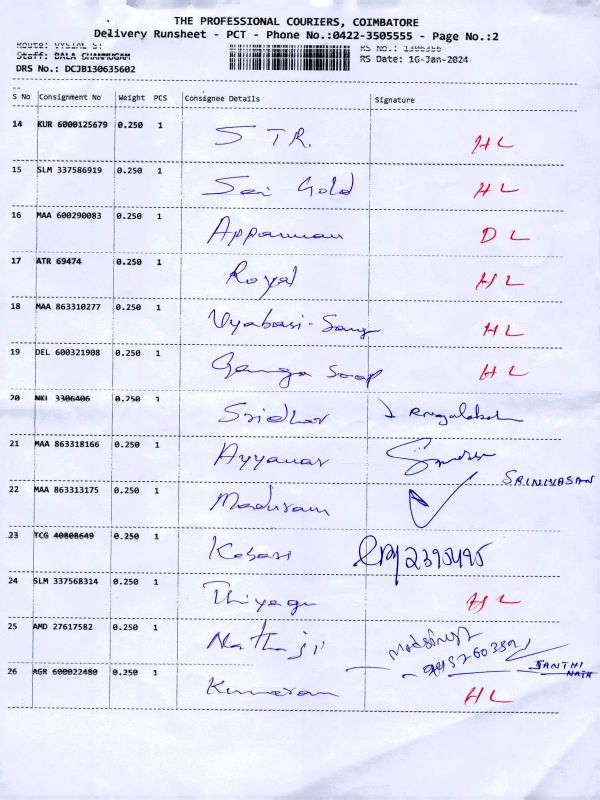 THE PROFESSIONAL COURIERS, COIMBATORE
Delivery Runsheet - PCT - Phone No.:0422-3505555 - Page No.:2
Staff: BALA SHANMUGAM
DRS No.: DCJB130635602
RS Date: 16-Jan-2024
S No Consignment No Weight PCS Consignee Details Signature
14 KUR 6000125679 0.250 1 STR. HL
15 SLM 337586919 0.250 1 Sai Gold HL
16 MAA 600290083 0.250 1 DL
17 ATR 69474 0.250 1 Royal HL
18 MAA 863310277 0.250 1 HL
19 DEL 600321908 0.250 1 Ganga Soap HL
20 NKI 3306406 0.250 1 Sridhar
21 MAA 863318166 0.250 1 Ayyanar
SRINIVASAN
22 MAA 863313175 0.250 1 Maduram
23 TCG 40808649 0.250 1
24 SLM 337568314 0.250 1 Thiyagu HL
25 AMD 27617582 0.250 1 Nathaji
SANTHI
NATH
26 AGR 600022480 0.250 1 Kumaran HL